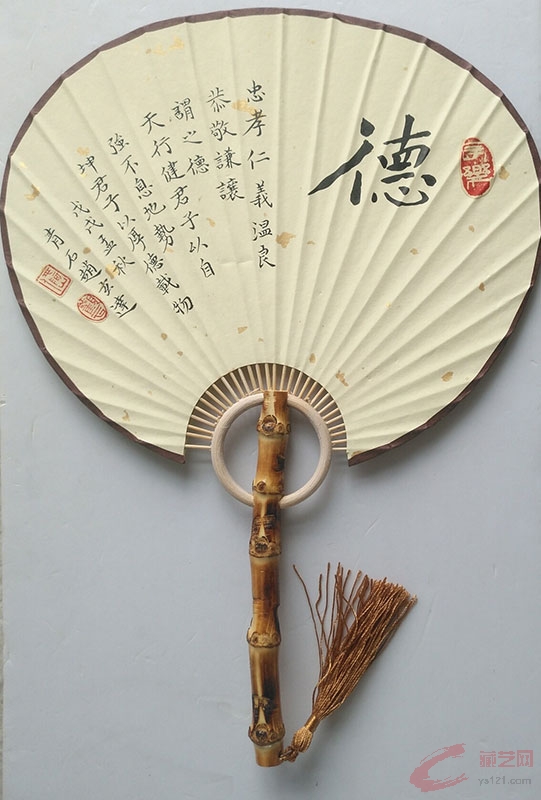 德
忠孝仁義温良
恭敬謙讓
謂之德
天行健君子以自
強不息地勢
坤君子以厚德載物
戊戌孟秋
青石趙達
藏艺网
ys121.com